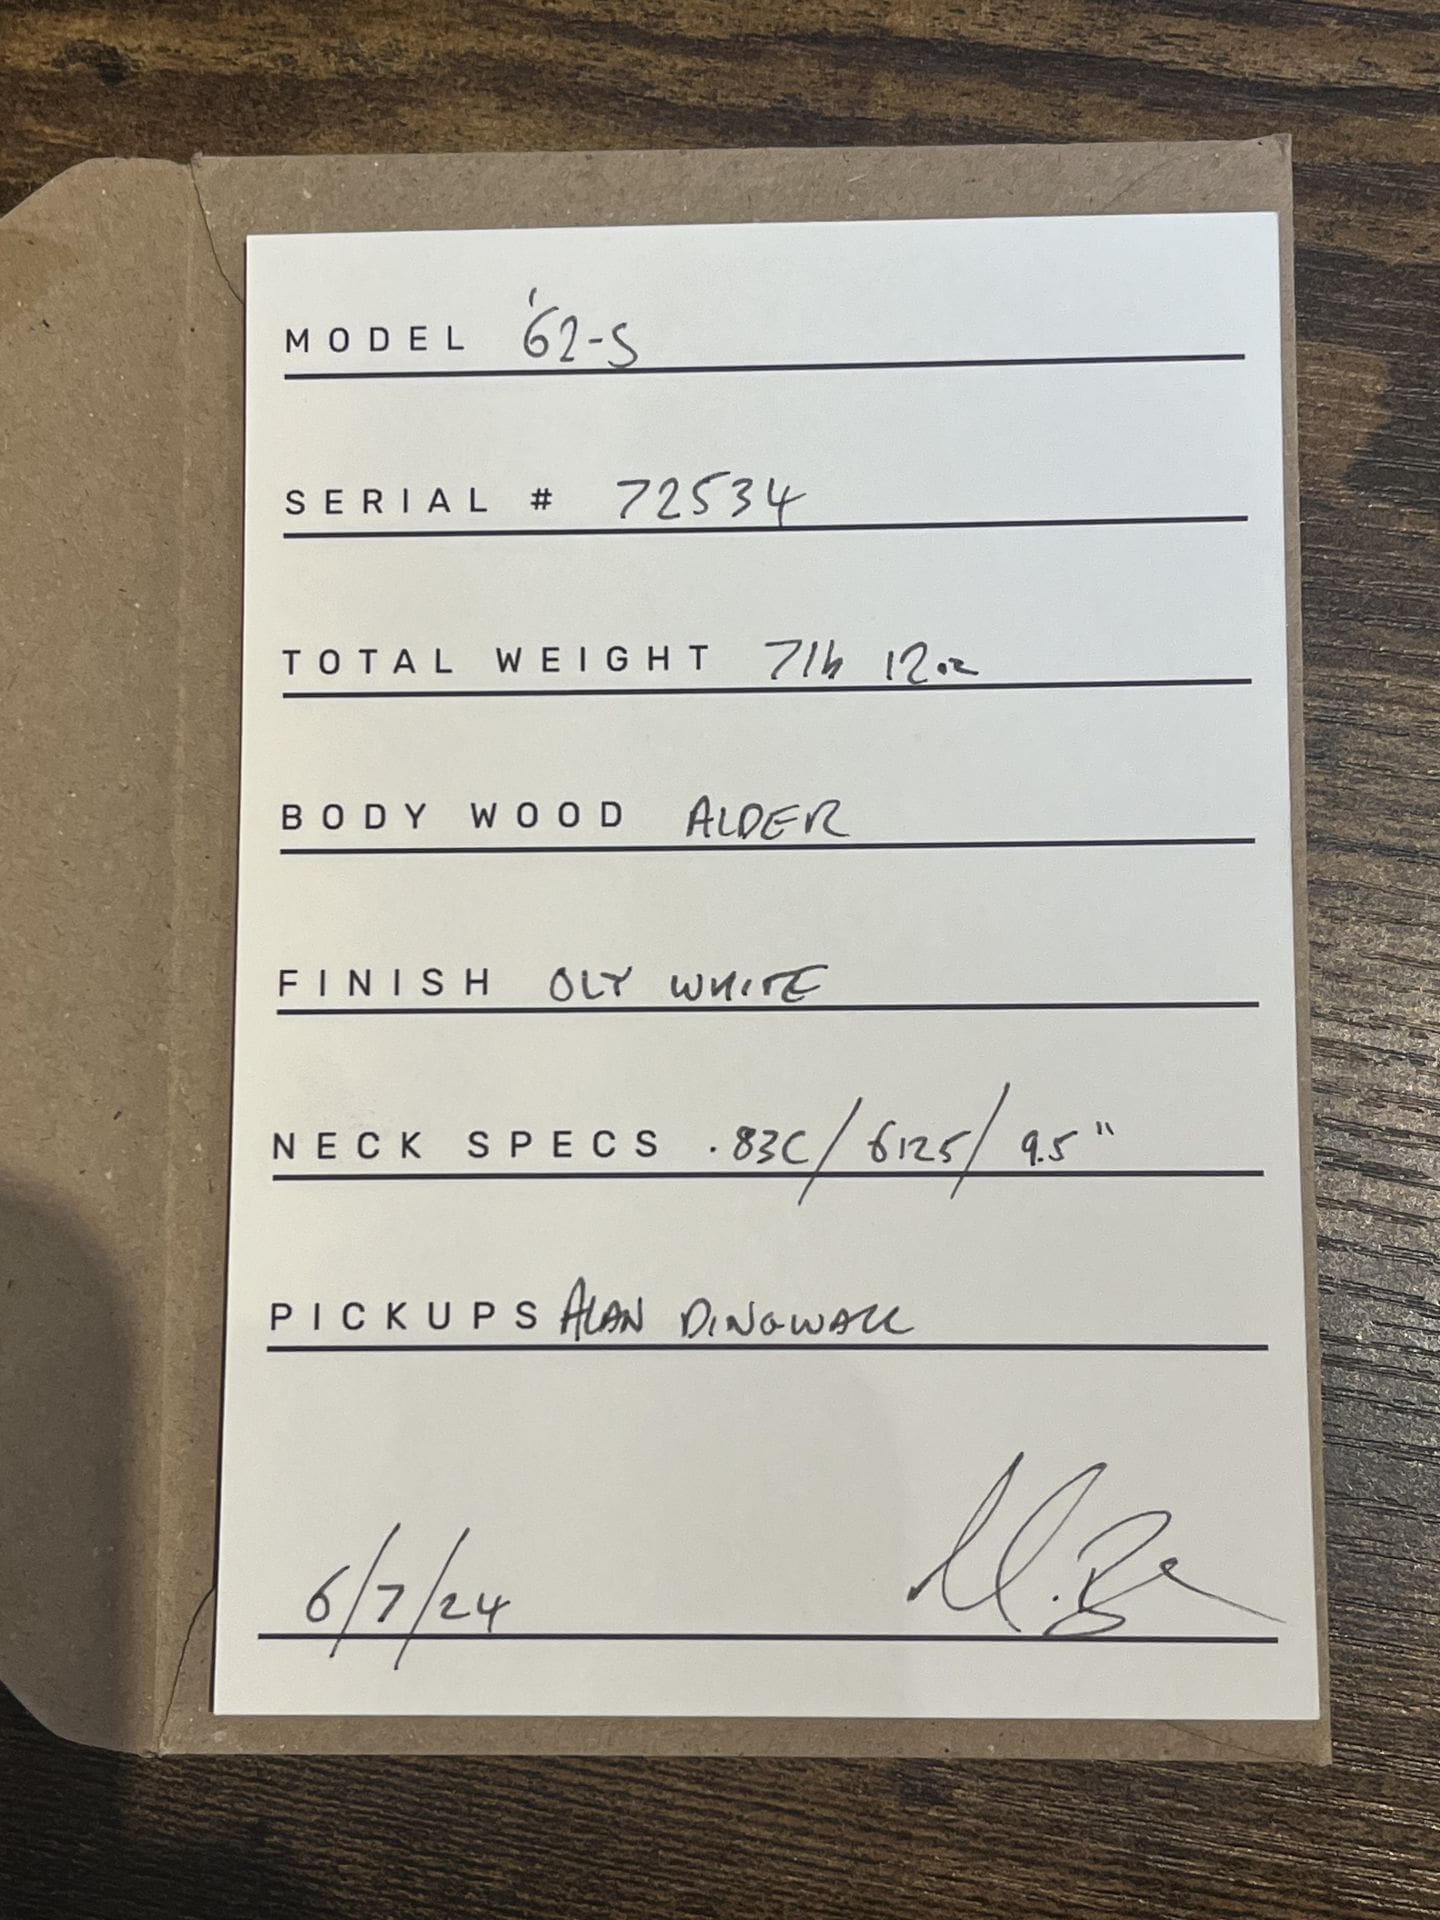 MODEL '62-S
SERIAL # 72534
TOTAL WEIGHT 7lb 12oz
BODY WOOD ALDER
FINISH OLY WHITE
NECK SPECS .83C/6125/9.5"
PICKUPS ALAN DINGWALL
6/7/24